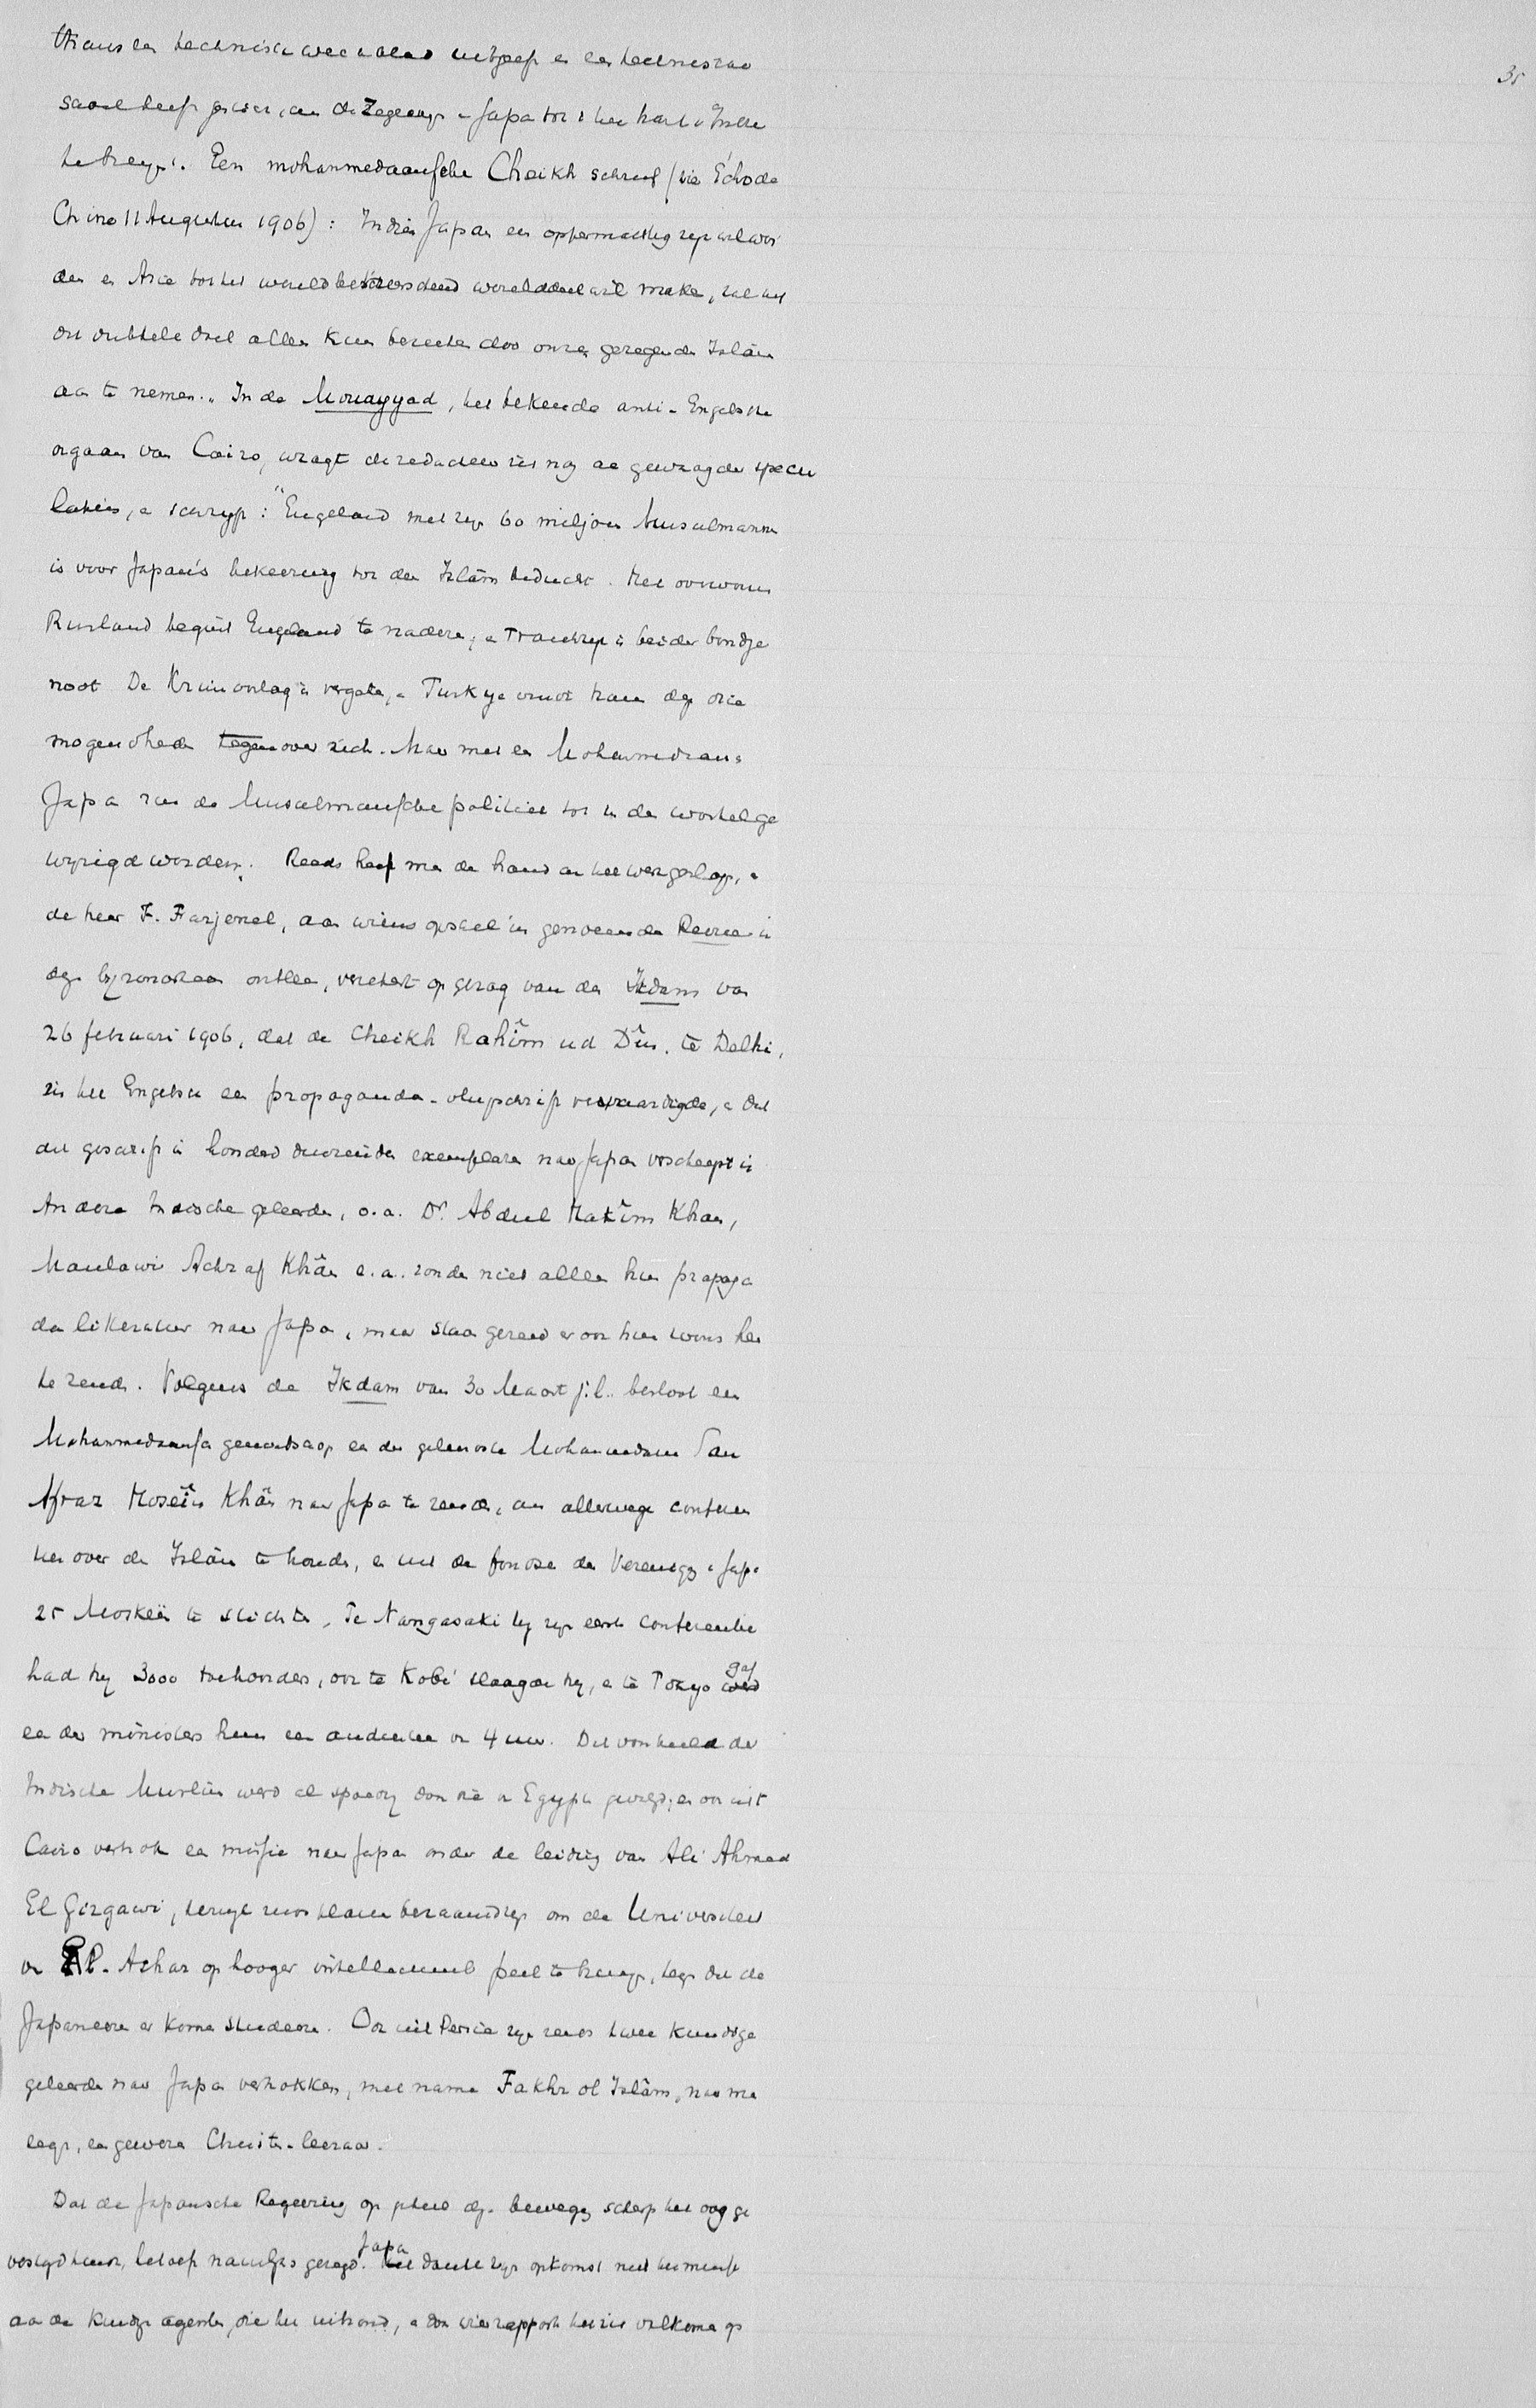 35
technisch weekblad uitgeeft en een
school heeft, om de zegeningen v Japan tot in het hart v Indië
te brengen. Een mohammedaansche Cheikh schreef (zie Écho de
Chine 11 Augustus 1906): Indien Japan een oppermachtig rijk wil wor
den en Azie tot het wereldbeheerschend werelddeel wil maken, zal het
dit dubbele doel alleen kunnen bereiken door onzen gezegenden Islâm
aan te nemen." In de Mouayyad, het bekende anti-Engelsche
orgaan van Cairo, waagt de redacteur zich nog aan gewaagder specu
laties, en schrijft: "Engeland met zijn 60 miljoen Musulmannen
is voor Japan's bekeering tot den Islâm beducht. Het overwonnen
Rusland begint Engeland te naderen, en Frankrijk is beider bondge
noot De Krimoorlog is vergeten, en Turkije vindt thans deze drie
mogendheden tegenover zich. Maar met een Mohammedaansch
Japan zou de Musulmansche politiek tot in den wortel ge
wijzigd worden. Reeds heeft men de hand aan het werk geslagen, en
de heer F. Farjenel, aan wiens opstel in genoemde Revue ik
deze bijzonderheden ontleen, verzekert op gezag van den Ikdam van
26 februari 1906, dat de Cheikh Rahîm ud Dîn, te Delhi,
in het Engelsch een propaganda-vlugschrift vervaardigde, en dat
dit geschrift in honderd duizenden exemplaren naar Japan verscheept is
Andere Indische geleerden, o.a. Dr. Abdul Hakîm Khan,
Maulawi Achraf Khân e.a. zonden niet alleen hun propagan
da literatuur naar Japan, maar staan gereed er ook hun zonen heen
te zenden. Volgens de Ikdam van 30 Maart j.l. besloot een
Mohammedaansch genootschap een der geleerdste Mohammedanen
Afraz Hoseïn Khân naar Japan te zenden, om allerwege conferen
ties over den Islâm te houden, en uit de fondsen der Vereeniging in Japan
25 Moskeën te stichten. Te Nangasaki bij zijn eerste conferentie
had hij 3000 toehoorders, ook te Kobé slaagde hij, en te Tokyo gaf
een der ministers hem een audientie van 4 uur. Dit voorbeeld der
Indische Muslims werd al spoedig door die in Egypte gevolgd; en ook uit
Cairo vertrok een missie naar Japan onder de leiding van Ali Ahmed
El Girgawi, terwijl reeds plannen beraamd zijn om de Universiteit
van El-Azhar op hooger intellectueel peil te brengen, tegen dat de
Japaneezen er komen studeeren. Ook uit Perzie zijn reeds twee kundige
geleerden naar Japan vertrokken, met name Fakhr ol Islâm, naar men
zegt, een gewezen Christen-leeraar.
Dat de Japansche Regeering op geheel deze beweging scherp het oog ge
vestigd houdt, behoeft nauwlijks gezegd. Japan dankt zijn opkomst niet het minst
aan de kundige agenten, die het uitzond, en door wier rapporten het zich volkomen op